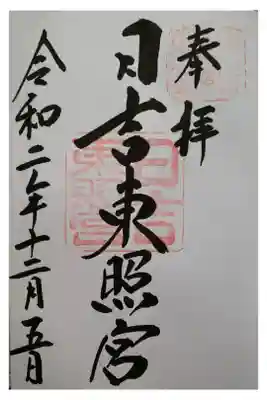 奉拝
日吉東照宮
令和二年十二月五日